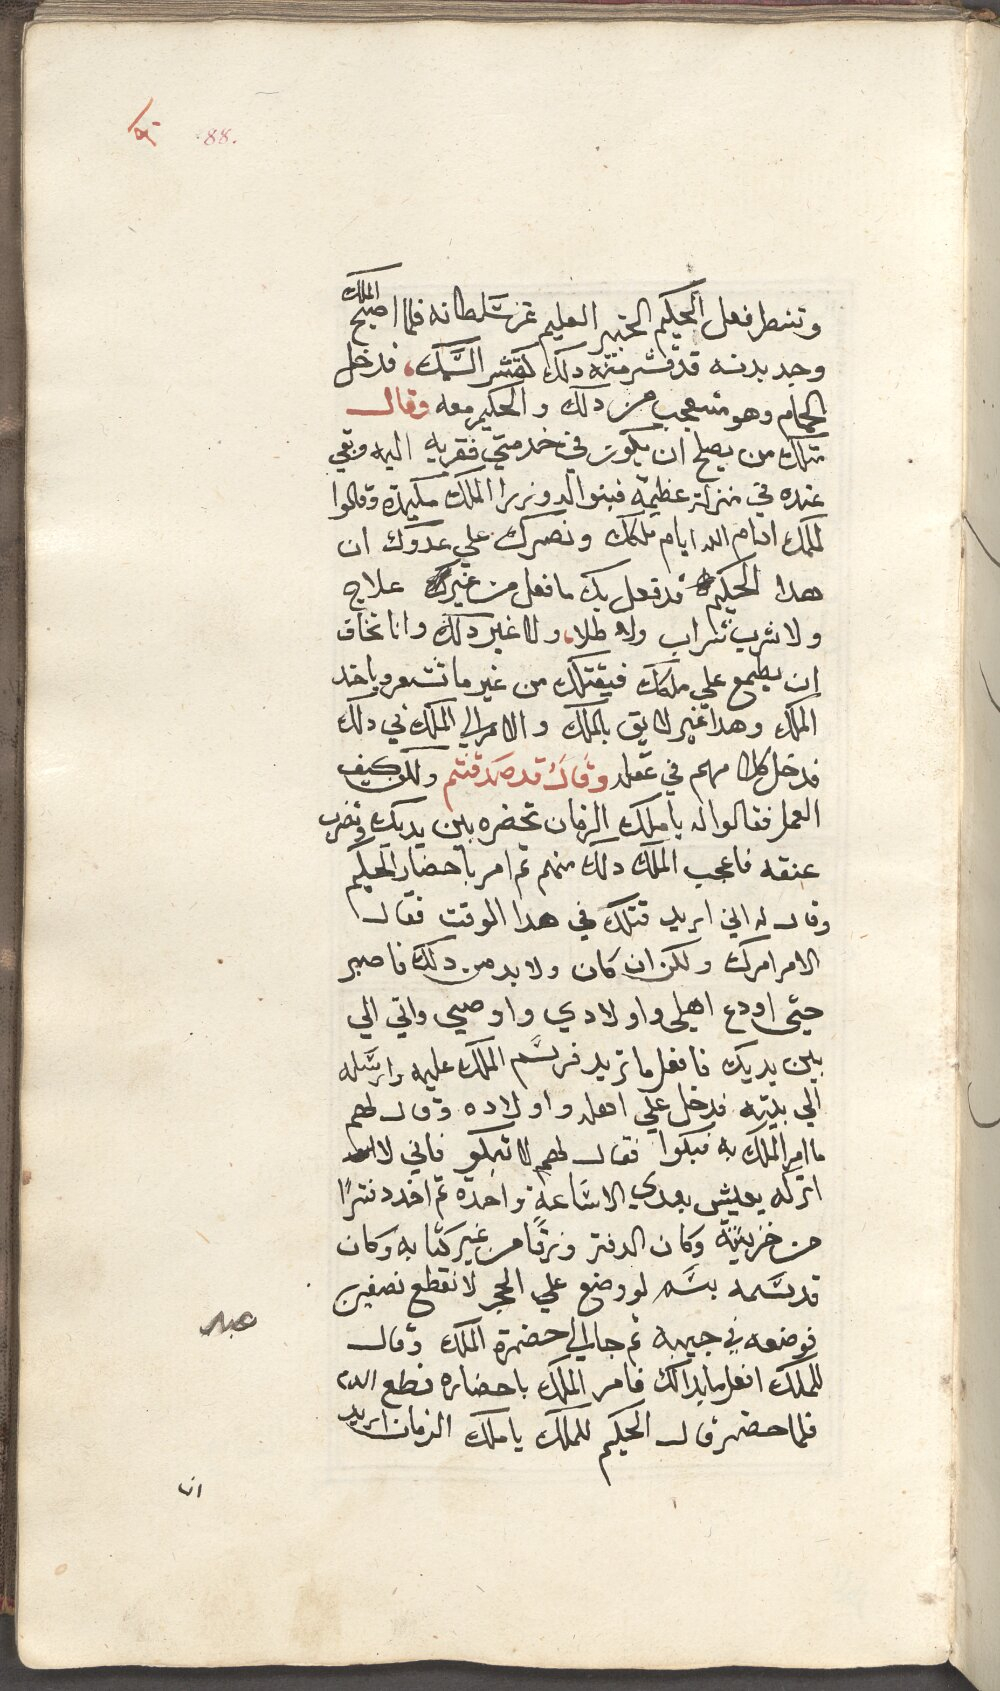 88.
وتنطر فعل الحكيم الخبير العليم عز سلطانه فلما اصبح الملك
وجد بدنه قد قشر منه دلك كقشر السمك، فدخل
الحمام وهو متعجب من دلك والحكيم معه وقال
مثلك من يصلح ان يكون في خدمتي فقربه اليه وبقي
عنده في منزلة عظيمة فبنوا الوزرا الملك مكيدة وقالوا
للملك ادام الله ايام ملكك ونصرك علي عدوك ان
هدا الحكيم قد فعل بك ما فعل من غير علاج
ولا شرب شراب ولا طلا، ولا غير دلك وانا نخاف
ان يطمع علي ملكك فيقتلك من غير ما تشعر وياخد
الملك وهدا غير لايق بالملك والامر الي الملك في دلك
فدخل كلامهم في عقله وقال قد صدقتم ولكن كيف
العمل فقالوا له يا ملك الزمان تحضره بين يديك وتضرب
عنقه فاعجب الملك دلك منهم ثم امر باحضار الحكيم
وقال له اني اريد قتلك في هدا الوقت فقال
الامر امرك ولكن ان كان ولا بد من دلك فاصبر
حتى اودع اهلي واولادي واوصي واتي الي
بين يديك فافعل ما تريد فرسم الملك عليه وارسله
الي بيته فدخل علي اهله واولاده وقال لهم
ما امر الملك به فبكوا فقال لهم لا تبكو فاني لا
اتركه يعيش بعدي الا ساعة واحدة ثم اخد دفترًا
من خزينة وكان الدفتر ورقًا من غير كتابه وكان
قد سمه بسم لو وضع علي الحجر لانقطع نصفين
فوضعه في جيبه ثم جا الي حضرة الملك وقال
للملك افعل ما بدا لك فامر الملك باحضاره نطع الدم
فلما حضر قال الحكيم للملك يا ملك الزمان اريد
ان